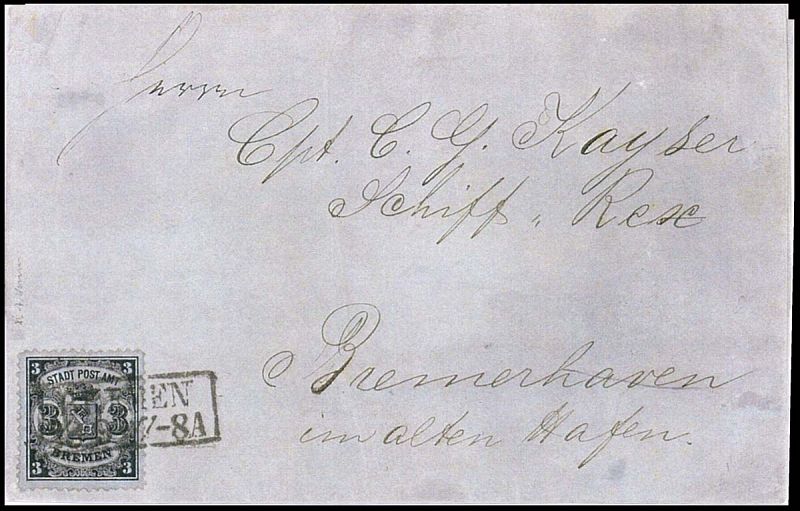 Herrn
Cpt. C. G. Kayser
Schiff „ Rex
Bremerhaven
im alten Hafen.
3 3
STADT POST AMT
3 3
BREMEN
3 3
MEN
7-8A